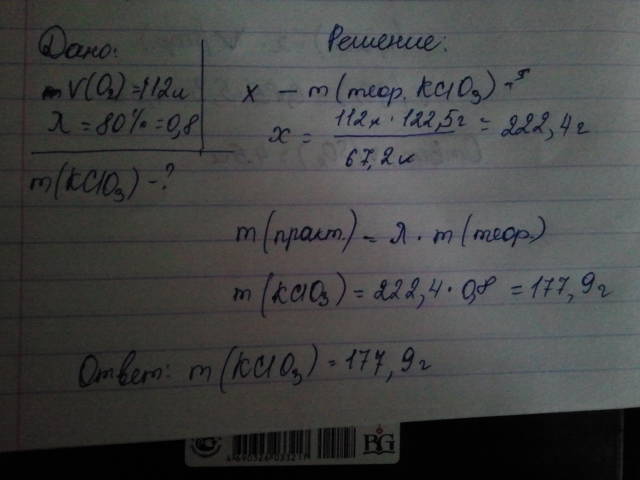 Дано:
V(O₂)=112л
λ=80%=0,8
m(KClO₃)-?
Решение:
x - m(теор. KClO₃) -
x = 112л · 122,5г / 67,2л = 222,4г
m(практ.) = λ · m(теор.)
m(KClO₃) = 222,4 · 0,8 = 177,9г
Ответ: m(KClO₃) = 177,9г
BG